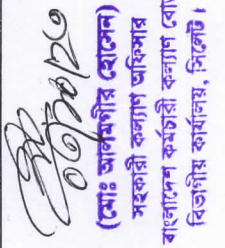 ০৩/১০/২৩
(মোঃ আলমগীর হোসেন)
সহকারী কল্যাণ অফিসার
বাংলাদেশ কর্মচারী কল্যাণ বো
বিভাগীয় কার্যালয়, সিলেট।